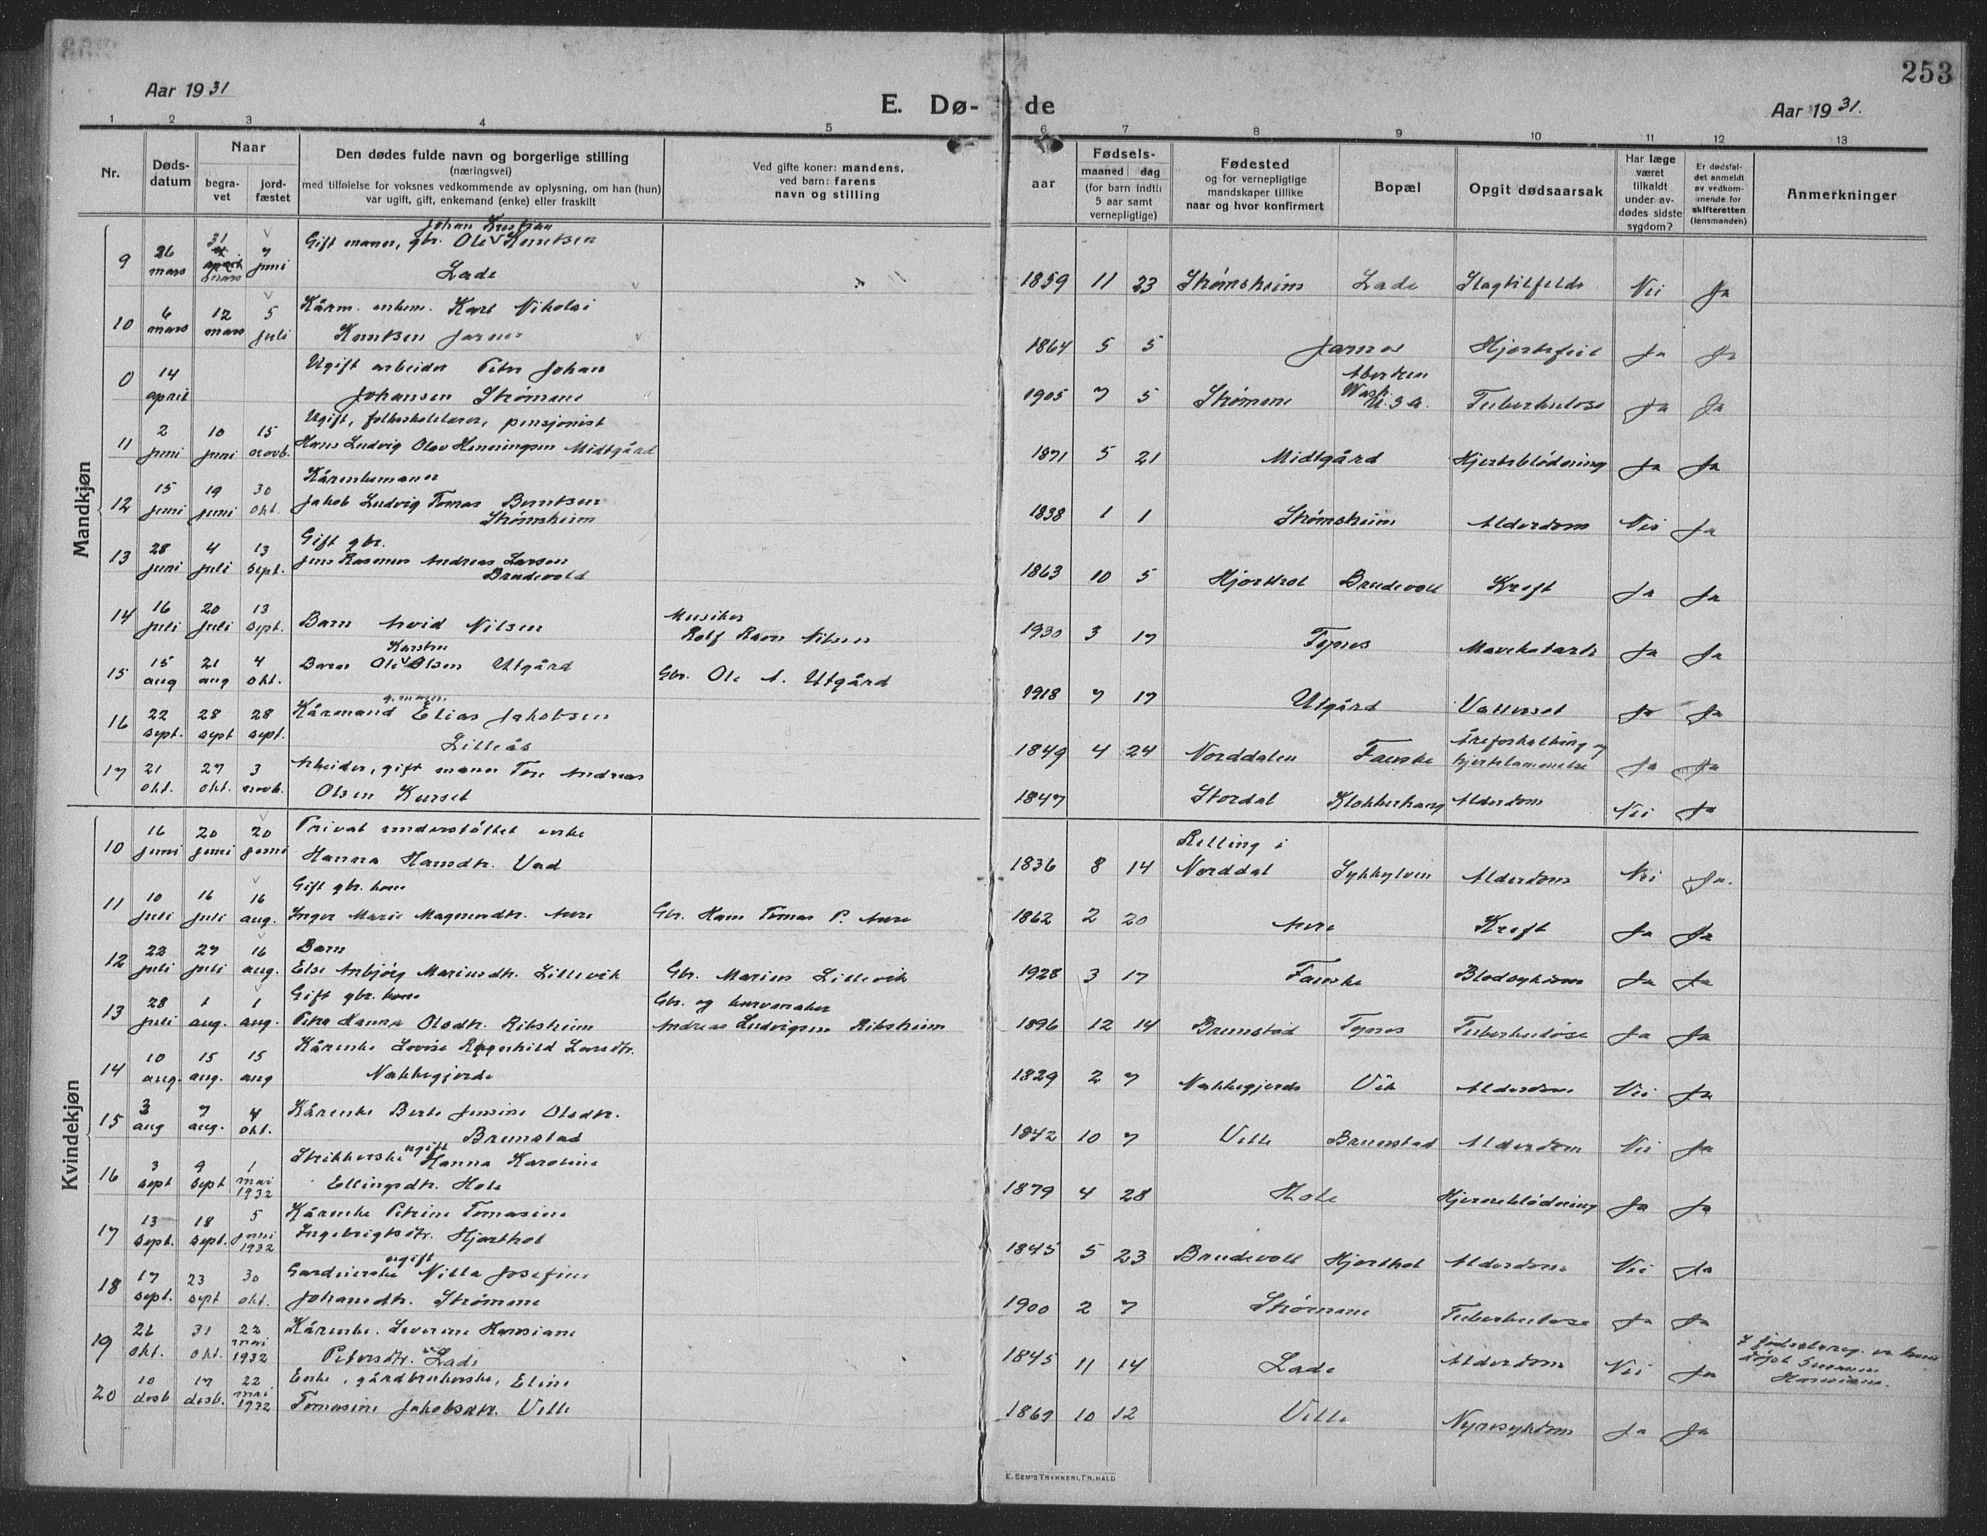 253
Aar 1931
E. Dø-de
Aar 1931.
1 2 3 4 5 6 7 8 9 10 11 12 13
Nr.
Døds-
datum
Naar
begra-
vet
jord-
fæstet
Den dødes fulde navn og borgerlige stilling
(næringsvei)
med tilføielse for voksnes vedkommende av oplysning, om han (hun)
var ugift, gift, enkemand (enke) eller fraskilt
Ved gifte koner: mandens,
ved barn: farens
navn og stilling
aar
Fødsels-
maaned dag
(for barn indtil
5 aar samt
vernepligtige)
Fødested
og for vernepligtige
mandskaper tillike
naar og hvor konfirmert
Bopæl
Opgit dødsaarsak
Har læge
været
tilkaldt
under av-
dødes sidste
sygdom?
Er dødsfal-
det anmeldt
av vedkom-
mende for
skifteretten
(lensmanden)
Anmerkninger
Mandkjøn
9 26 mars 31 mars 7 juni Gift mann, gbr. Ole Johan Kristian Knutsen
Lade 1859 11 23 Strømsheim Lade Slagtilfelde Nei Ja
10 6 mars 12 mars 5 juli Kårm. enkem. Karl Nikolai
Knutsen Jarnes 1864 5 5 Jarnes Hjertefeil Ja Ja
0 14 april Ugift arbeider Peter Johan
Johansen Strømme 1905 7 5 Strømme Aberdeen Wash. U.S.A. Tuberkulose Ja Ja
11 2 juni 10 juni 15 novb. Ugift, folkeskolelærer, pensjonist
Hans Ludvig Olav Henningsen Midtgård 1871 5 21 Midtgård Hjerteblødning Ja Ja
12 15 juni 19 juni 30 okt. Kårenkemann
Jakob Ludvig Tomas Berntsen
Strømsheim 1838 1 1 Strømsheim Alderdom Nei Ja
13 28 juni 4 juli 13 sept. Gift gbr.
Jens Rasmus Andreas Larsen
Brudevold 1863 10 5 Hjorthol Brudevoll Kreft Ja Ja
14 16 juli 20 juli 13 sept. Barn Arvid Nilsen Musiker
Rolf Ravn Nilsen 1930 3 17 Tynes Mavekatarh Ja Ja
15 15 aug 21 aug 4 okt. Barn Ole Karsten Olsen Utgård Gbr. Ole A. Utgård 1918 7 17 Utgård Vattersot Ja Ja
16 22 sept. 28 sept 28 sept. Kårmand g. mann. Elias Jakobsen
Lilleås 1849 4 24 Norddalen Fauske Åreforkalkning og
hjertelammelse Ja Ja
17 21 okt. 27 okt. 3 novb. Arbeider, gift mann Tore Andreas
Olsen Kurset 1847 Stordal Klokkerhaug Alderdom Nei Ja
Kvindekjøn
10 16 juni 20 juni 20 juni Privat understøttet enke
Hanna Hansdtr. Vad 1836 8 14 Relling i
Norddal Sykkylven Alderdom Nei Ja.
11 10 juli 16 juli 16 aug. Gift gbr. kone
Inger Marie Magnusdtr. Aure Gbr. Hans Tomas P. Aure 1862 2 20 Aure Kreft Ja Ja
12 22 juli 27 juli 16 aug. Barn
Else Anbjørg Mariusdtr. Lillevik Gbr. Marius Lillevik 1928 3 17 Fauske Blodsykdom Ja Ja
13 28 juli 1 aug. 1 aug. Gift gbr. kone
Petra Hanna Olsdtr. Riksheim Gbr. og kurvmaker
Andreas Ludvigsen Riksheim 1896 12 14 Brunstad Tynes Tuberkuløse Ja Ja
14 10 aug. 15 aug. 15 aug Kårenke Lovise Ragnhild Larsdtr.
Nakkegjerde 1829 2 7 Nakkegjerde Vik Alderdom Nei Ja
15 3 aug 7 aug. 4 okt. Kårenke Berte Jensine Olsdtr.
Brunstad 1842 10 7 Velle Brunstad Alderdom Nei Ja
16 3 sept 9 sept 1 mai 1932 Strikkerske ugift Hanna Karoline
Ellingsdtr. Hole 1879 4 28 Hole Hjerneblødning Ja Ja
17 13 sept. 18 sept. 5 juni 1932 Kårenke Petrine Tomasine
Ingebrigtsdtr. Hjorthol 1845 5 23 Brudevoll Hjorthol Alderdom Nei Ja
18 17 sept. 23 sept 30 okt. ugift Nilla Josefine
Johansdtr. Strømme 1900 2 7 Strømme Tuberkulose Ja Ja
19 26 okt. 31 okt. 22 mai 1932 Kårenke. Severine Hansiane
Petersdtr. Lade 1845 11 14 Lade Alderdom Nei Ja I fødselsreg. er hun
døpt
Hansiane.
20 10 desb 17 desb. 22 mai 1932 Enke, gårdbrukerske, Eline
Tomasine Jakobsdtr. Velle 1869 10 12 Velle Nyresykdom Ja Ja
E. SEM'S TRYKKERI, FR. HALD